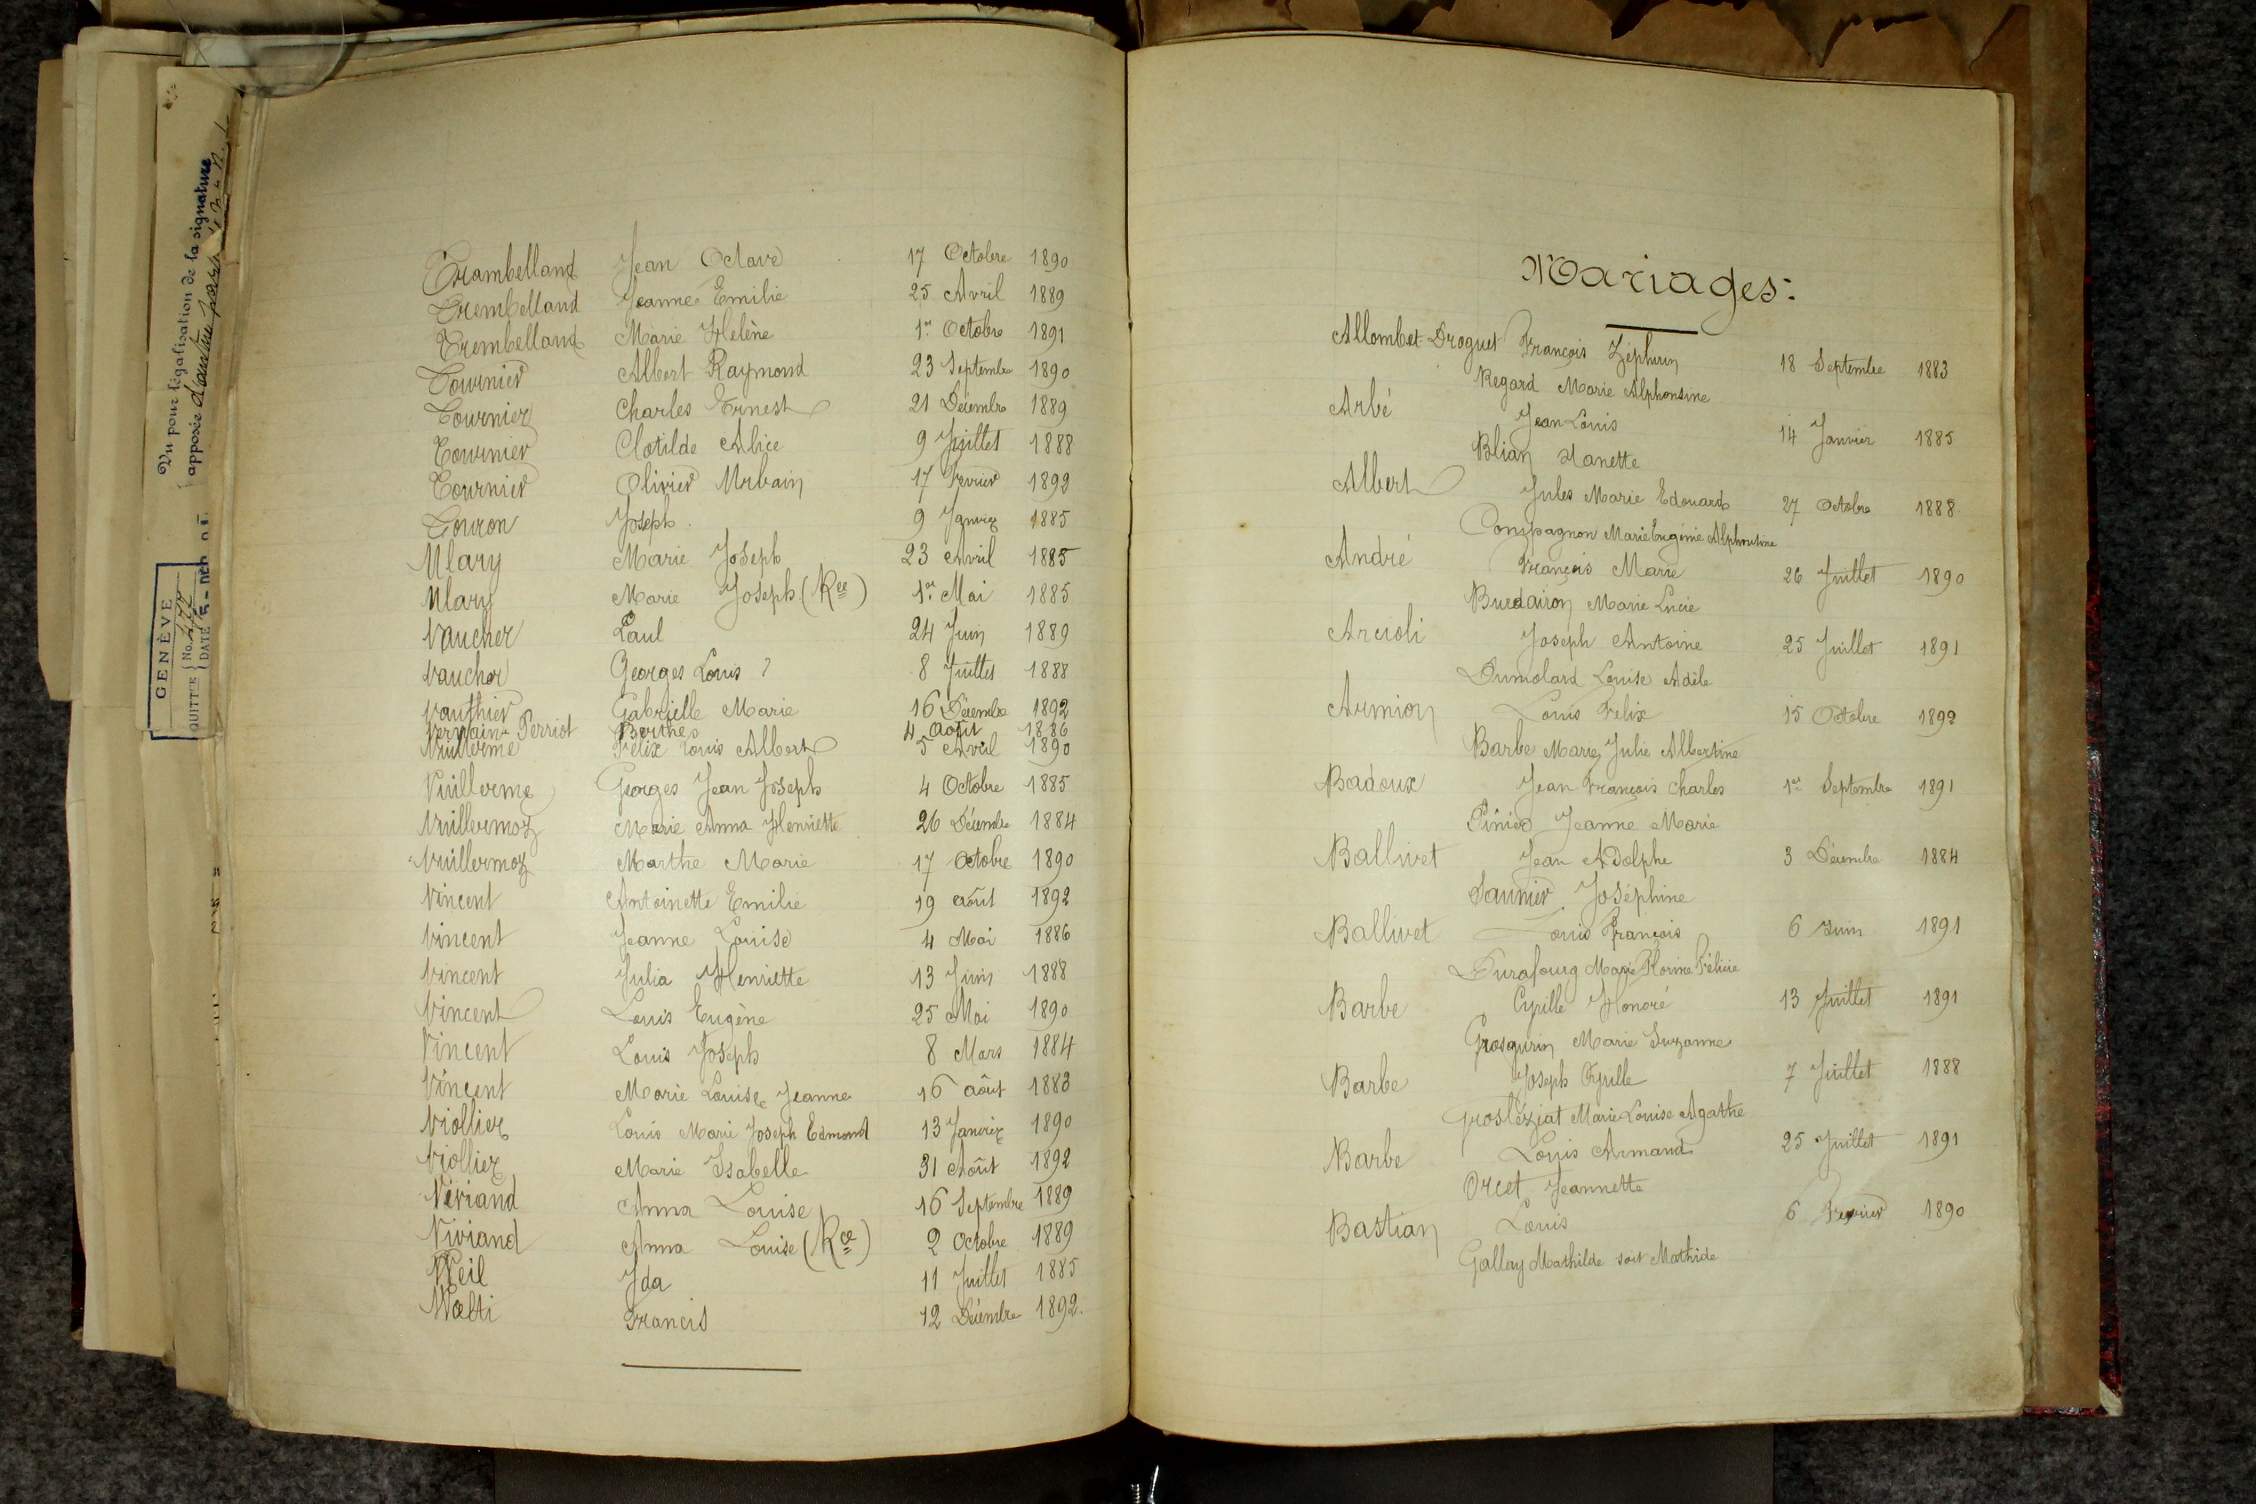 Vu pour légalisation de la signature
apposée d'autre part
GENÈVE
QUITT'E No. 477
DATE
Trambelland Jean Octave 17 Octobre 1890
Trembelland Jeanne Emilie 25 Avril 1889
Trembelland Marie Helène 1er Octobre 1891
Tournier Albert Raymond 23 Septembre 1890
Tournier Charles Ernest 21 Décembre 1889
Tournier Clotilde Alice 9 Juillet 1888
Tournier Olivier Urbain 17 Fevrier 1892
Touron Joseph 9 Janvier 1885
Ulary Marie Joseph 23 Avril 1885
Ulary Marie Joseph (Rce) 1er Mai 1885
Vaucher Paul 24 Juin 1889
Vaucher Georges Louis ? 8 Juillet 1888
Vauthier Gabrielle Marie 16 Décembre 1892
Vernain-Perriot Berthe 4 Août 1886
Vuillerme Félix Louis Albert 5 Avril 1890
Vuillerme Georges Jean Joseph 4 Octobre 1885
Vuillermoz Marie Anna Henriette 26 Décembre 1884
Vuillermoz Marthe Marie 17 Octobre 1890
Vincent Antoinette Emilie 19 août 1892
Vincent Jeanne Louise 4 Mai 1886
Vincent Julia Henriette 13 Juin 1888
Vincent Louis Eugène 25 Mai 1890
Vincent Louis Joseph 8 Mars 1884
Vincent Marie Louise Jeanne 16 août 1883
Viollier Louis Marie Joseph Edmond 13 Janvier 1890
Viollier Marie Isabelle 31 Août 1892
Viviand Anna Louise 16 Septembre 1889
Viviand Anna Louise (Rce) 2 Octobre 1889
Weil Ida 11 Juillet 1885
Wœlti Francis 12 Décembre 1892.
Mariages:
Allombet-Droguet François Zéphirin 18 Septembre 1883
Regard Marie Alphonsine
Arbé Jean Louis 14 Janvier 1885
Blian Nanette
Albert Jules Marie Edouard 27 Octobre 1888
Compagnon Marie Eugénie Alphonsine
André François Marie 26 Juillet 1890
Burdairon Marie Lucie
Arcioli Joseph Antoine 25 Juillet 1891
Dumolard Louise Adèle
Armion Louis Felix 15 Octobre 1892
Barbe Marie Julie Albertine
Badoux Jean François Charles 1er Septembre 1891
Pinier Jeanne Marie
Ballivet Jean Adolphe 3 Décembre 1884
Saunier Joséphine
Ballivet Louis François 6 Juin 1891
Durafourg Marie Florine Félicie
Barbe Cyrille Honoré 13 Juillet 1891
Grosgurin Marie Suzanne
Barbe Joseph Cyrille 7 Juillet 1888
Grosléziat Marie Louise Agathe
Barbe Louis Armand 25 Juillet 1891
Orcet Jeannette
Bastian Louis 6 Fevrier 1890
Gallay Mathilde soit Mathide